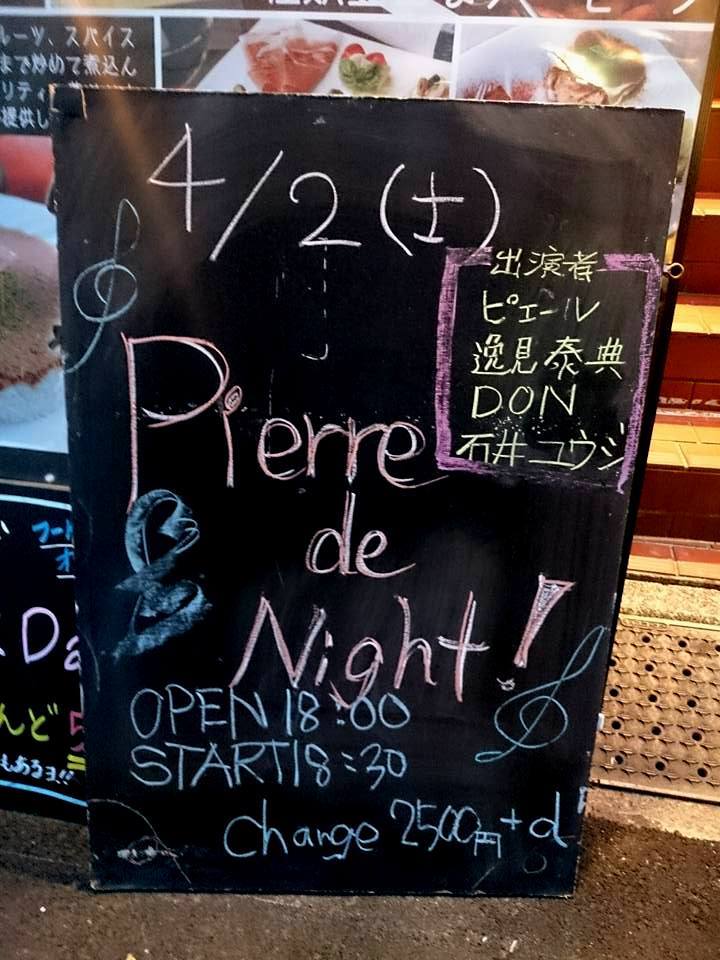 ルーツ、スパイス
まで炒めて煮込ん
リティ
提供し
4/2(土)
出演者
ピエール
逸見泰典
DON
石井ユウジ
Pierre
de
Night!
OPEN 18:00
START 18:30
Change 2500円+d
Da
んど
もあるヨ!!